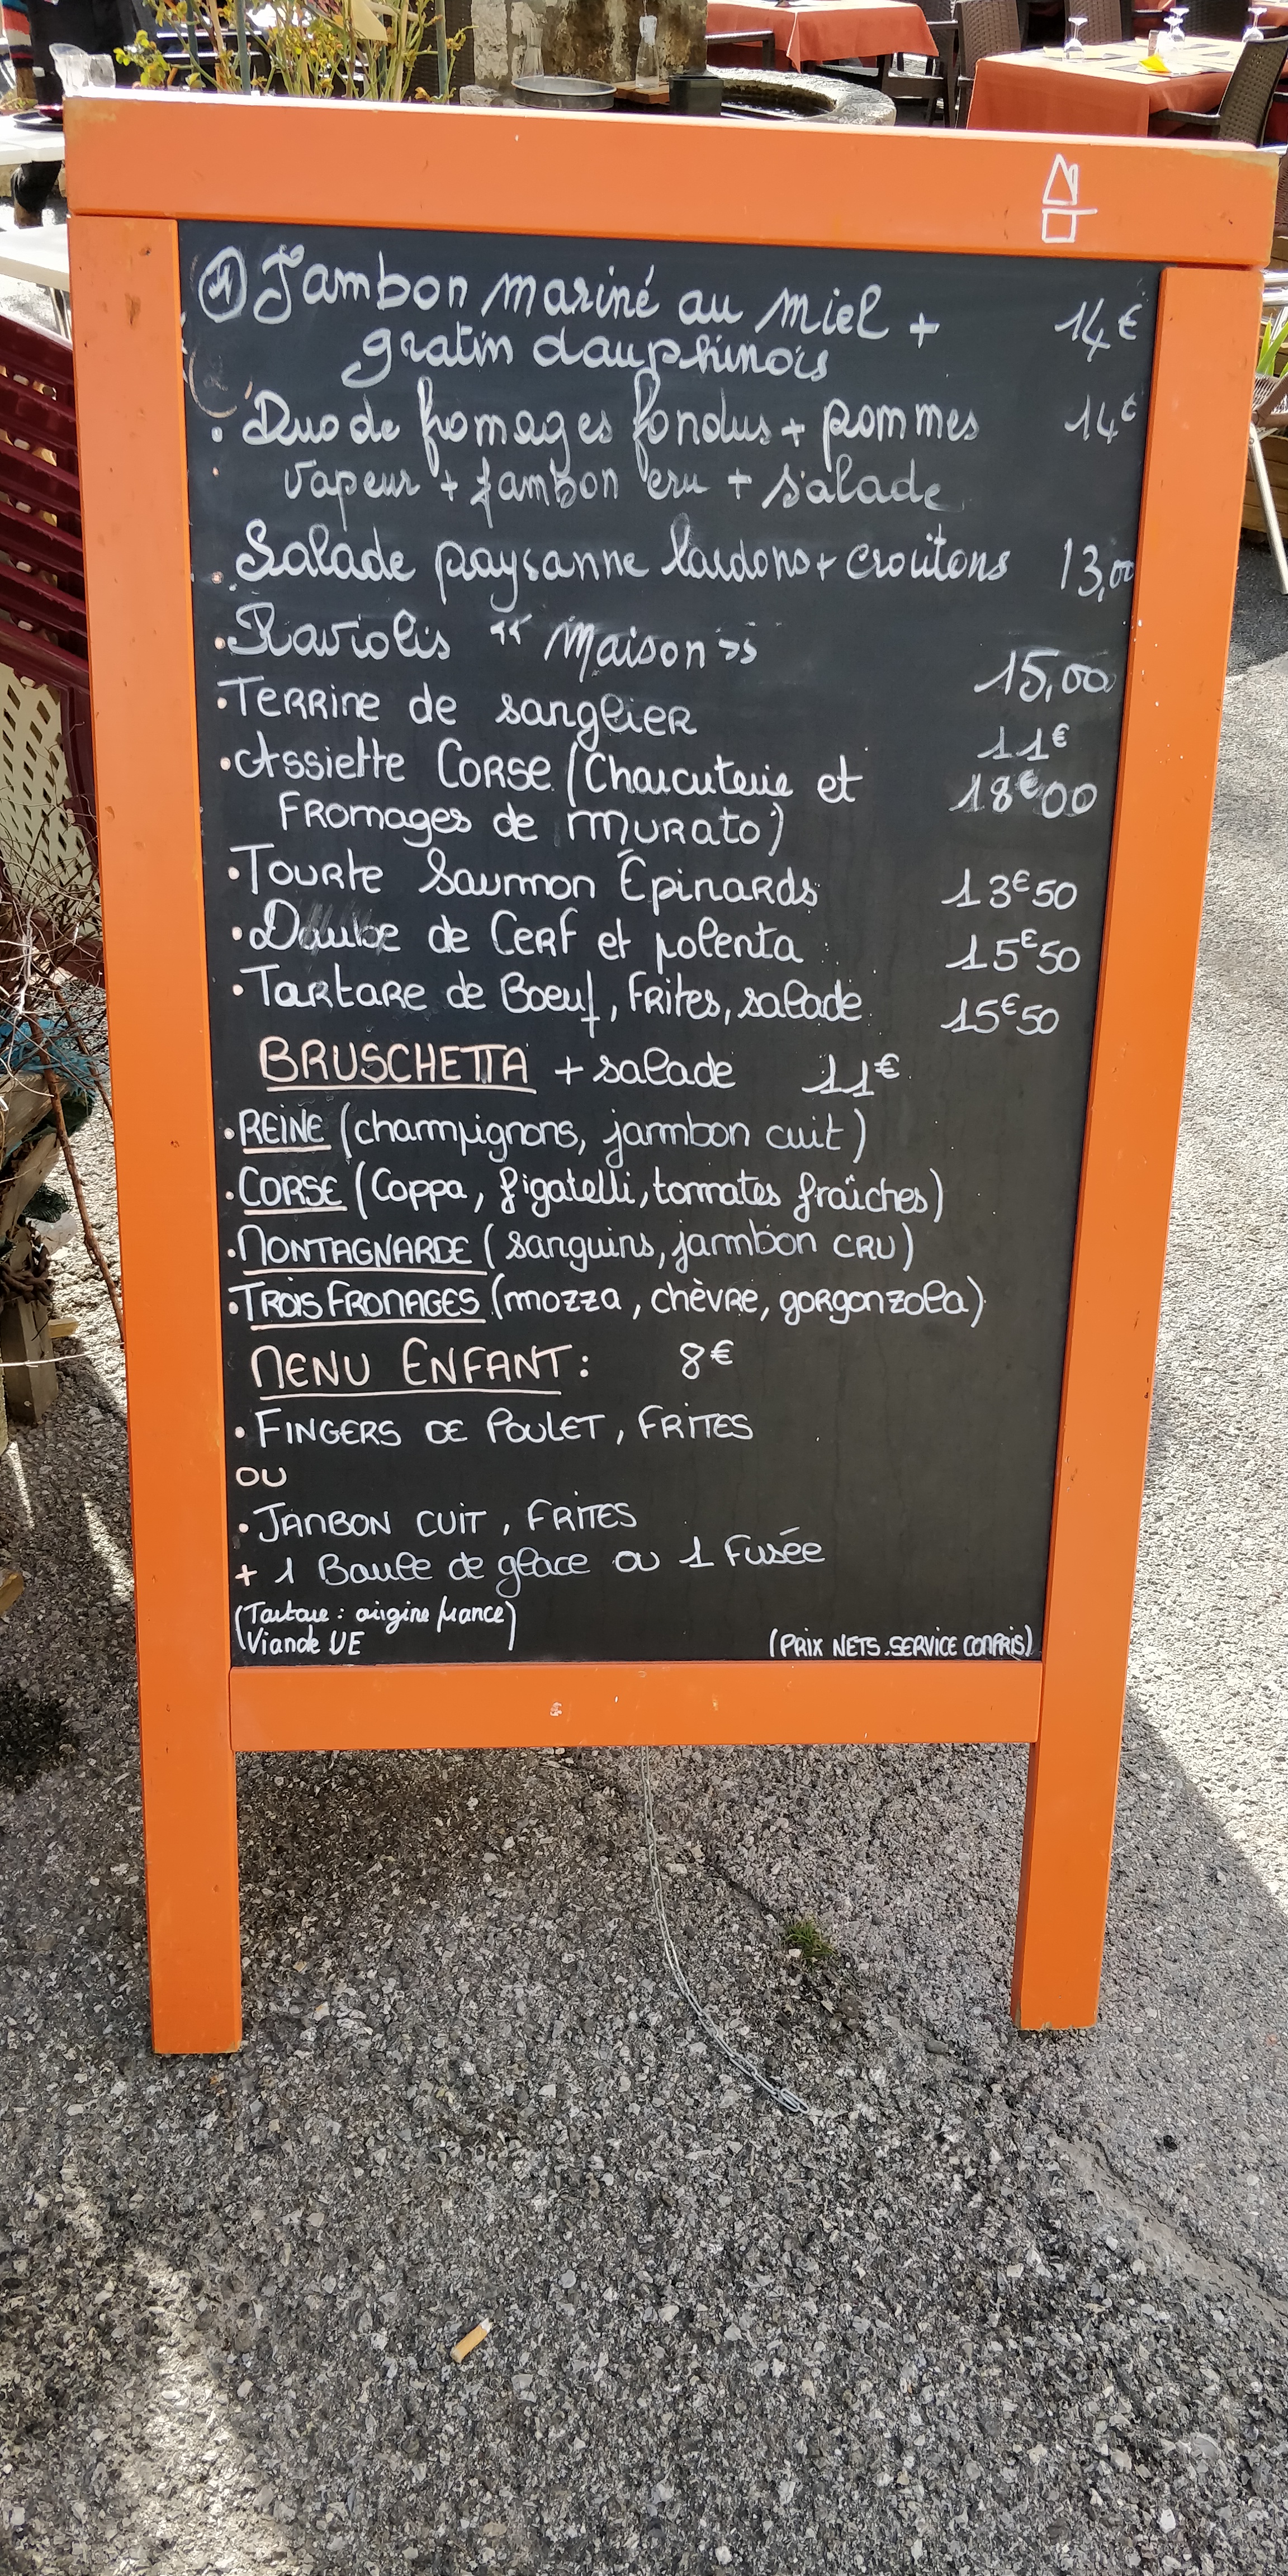 Jambon mariné au miel + 14€
gratin dauphinois
• Duo de fromages fondus + pommes 14€
vapeur + jambon cru + salade
• Salade paysanne lardons + croutons 13,00
• Raviolis "Maison" 15,00
• Terrine de sanglier 11€
• Assiette Corse (Charcuterie et 18€00
Fromages de Murato)
• Tourte Saumon Épinards 13€50
• Daube de Cerf et polenta 15€50
• Tartare de Boeuf, Frites, salade 15€50
BRUSCHETTA + salade 11€
• REINE (champignons, jambon cuit)
• CORSE (Coppa, figatelli, tomates fraîches)
• MONTAGNARDE (sanguins, jambon CRU)
• TROIS FROMAGES (mozza, chèvre, gorgonzola)
MENU ENFANT: 8€
• FINGERS DE POULET, FRITES
OU
• JAMBON CUIT, FRITES
+ 1 Boule de glace ou 1 Fusée
(Tartare : origine france)
Viande UE (PRIX NETS. SERVICE COMPRIS)